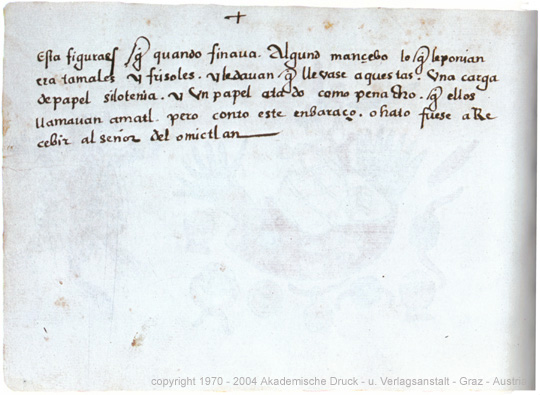 +
Esta figura es / q̃ quando finava. Algund mançebo lo q̃ le ponian
era tamales y frisoles. y le davan q̃ llevase aquestas. Una carga
de papel si lo tenia. y un papel atado como penacho. q̃ ellos
llamavan amatl. pero con to este enbaraço. o hato fuese a Re
cebir al señor del omictlan
copyright 1970 - 2004 Akademische Druck - u. Verlagsanstalt - Graz - Austria